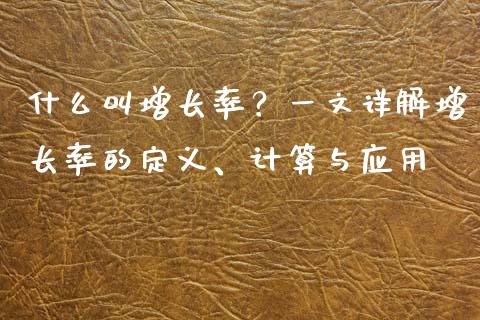 什么叫增长率？一文详解增
长率的定义、计算与应用